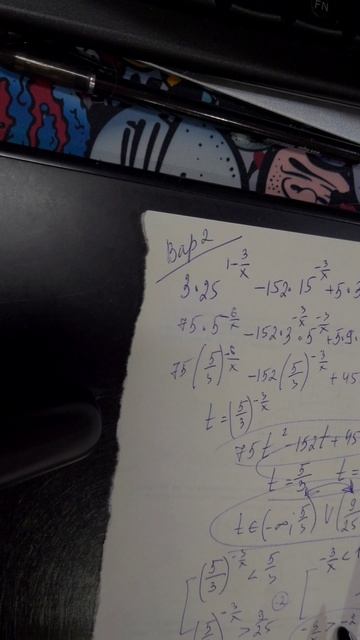 FN
Вар 2
3·25^{1-\frac{3}{x}} -152·15^{-\frac{3}{x}} +5·3
75·5^{-\frac{6}{x}} -152·3^{-\frac{3}{x}}·5^{-\frac{3}{x}} +5·9
75(\frac{5}{3})^{-\frac{6}{x}} -152(\frac{5}{3})^{-\frac{3}{x}} +45
t=(\frac{5}{3})^{-\frac{3}{x}}
75t^2 -152t+45
t=\frac{5}{3} t=
t∈(-∞;\frac{5}{3})∪(\frac{9}{25}
(\frac{5}{3})^{-\frac{3}{x}} < \frac{5}{3} -\frac{3}{x} < 1